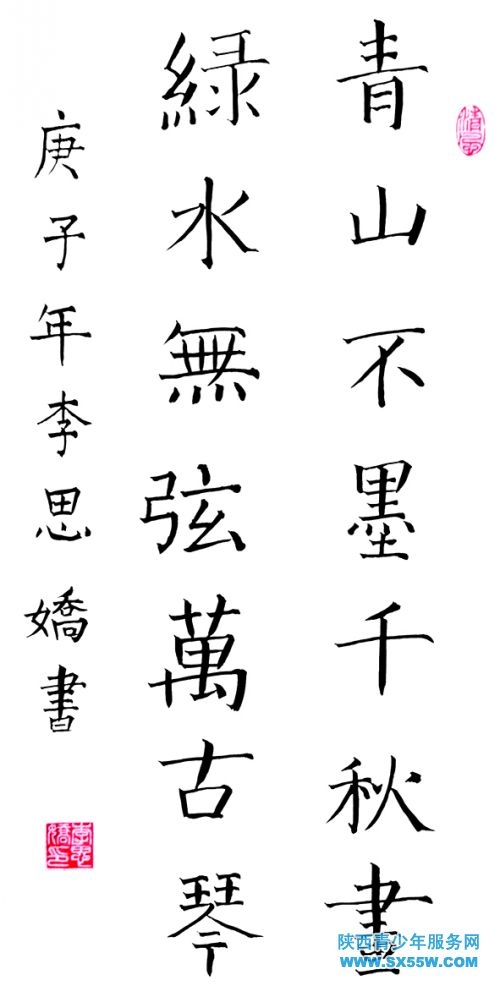 青山不墨千秋畫
緑水無弦萬古琴
庚子年李思嬌書
李思嬌印
陕西青少年服务网
www.sx55w.com